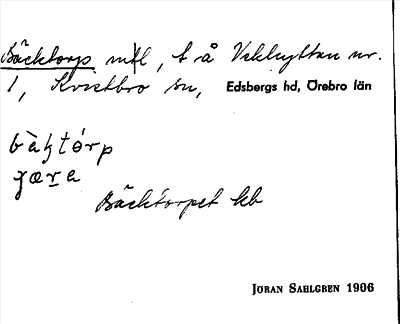 Bäcktorp mfl, t å Vekhyttan nr.
1, Kvistbro sn, Edsbergs hd, Örebro län
bàꞣtórp
Bäcktorpet kb
JÖRAN SAHLGREN 1906